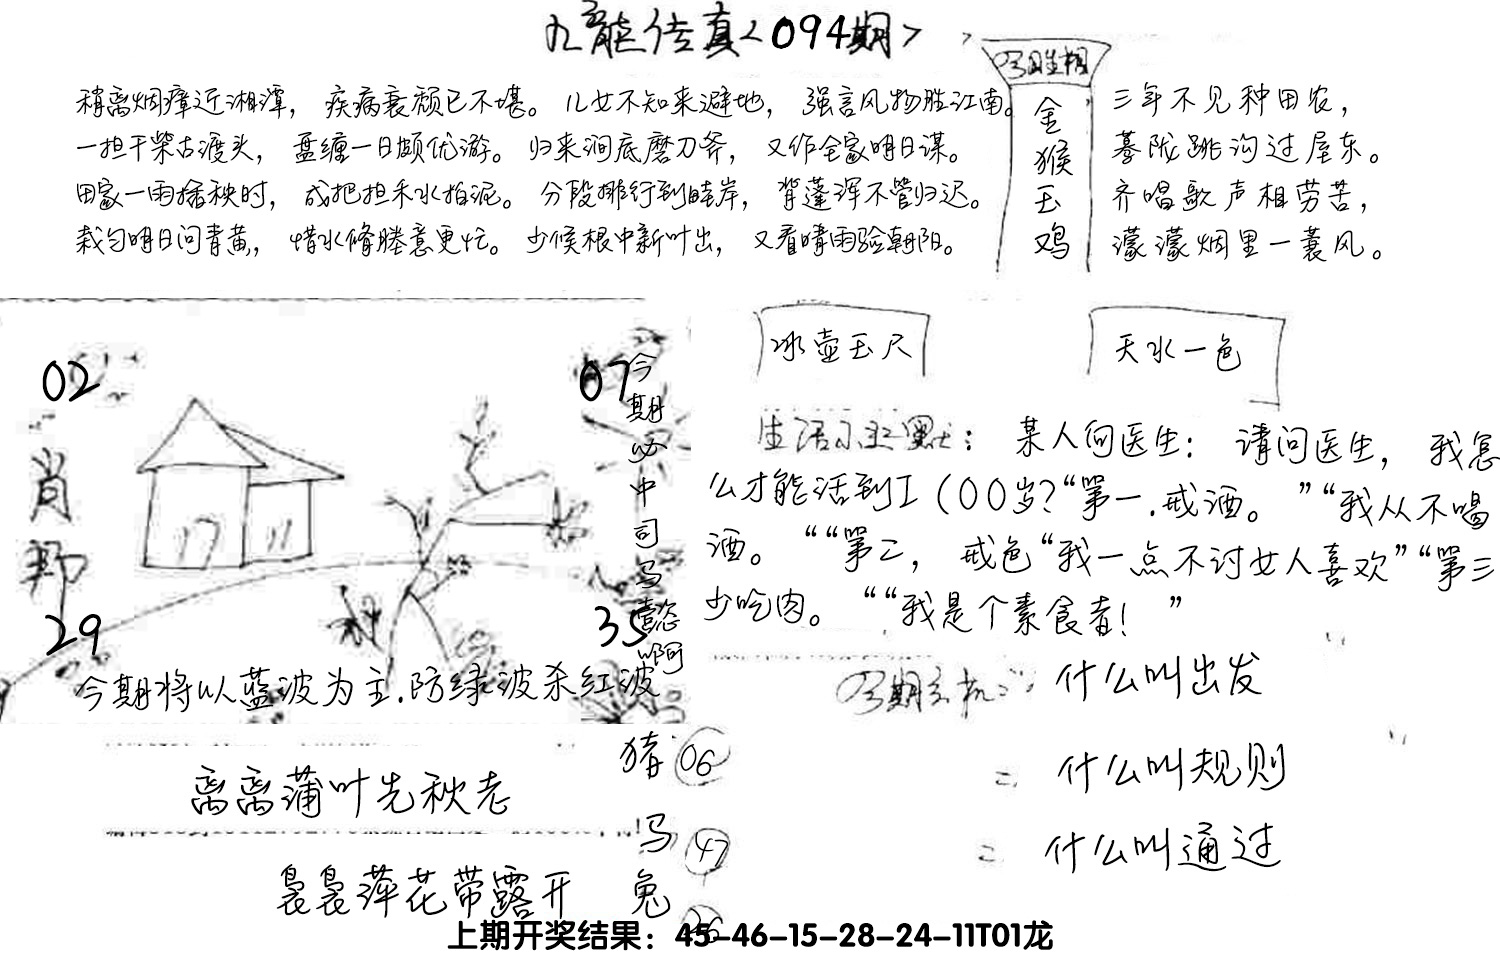 九龙传真<094期>
稍离烟瘴近湘潭，疾病衰颓已不堪。儿女不知来避地，强言风物胜江南。
一担干柴古渡头，盘缠一日颇优游。归来涧底磨刀斧，又作全家明日谋。
田家一雨插秧时，成把担禾水拍泥。分段排行到畦岸，背蓬浑不管归迟。
栽匀明日问青黄，惜水修塍意更忙。少候根中新叶出，又看晴雨验朝阳。
今期生相
金猴玉鸡
三年不见种田农，
蓦陇跳沟过屋东。
齐唱歌声相劳苦，
濛濛烟里一蓑风。
02
07
肖郑
29
35
今期必中司马懿啊
今期将以蓝波为主.防绿波杀红波
冰壶玉尺
天水一色
生活小幽默：某人向医生：请问医生，我怎
么才能活到工(00岁?“第一.戒酒。”“我从不喝
酒。““第二，戒色“我一点不讨女人喜欢”“第三
少吃肉。““我是个素食者！”
今期玄机：什么叫出发
什么叫规则
什么叫通过
离离蒲叶先秋老
袅袅萍花带露开
猪 06
马 47
兔 26
上期开奖结果：45-46-15-28-24-11T01龙